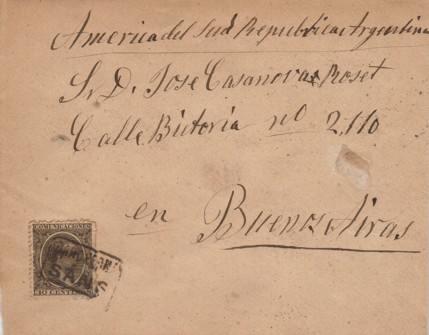 America del Sud Republica Argentina
S. D. Jose Casanovas Roset
Calle Bictoria nº 2,110
en Buenos Airas
COMUNICACIONES
40 CENTIMOS